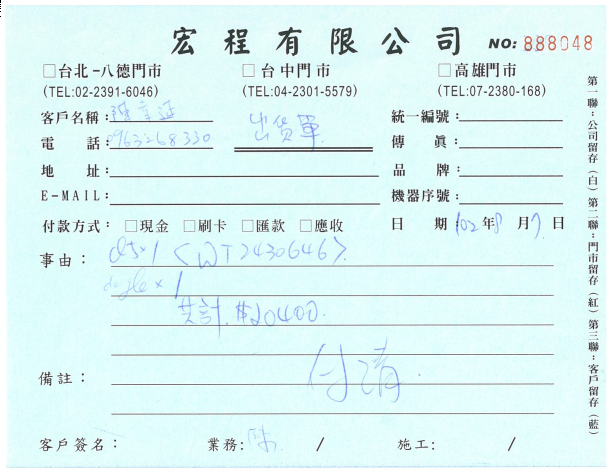 宏程有限公司 NO: 888048
□台北-八德門市 □台中門市 □高雄門市
(TEL:02-2391-6046) (TEL:04-2301-5579) (TEL:07-2380-168)
客戶名稱: 統一編號:
電 話: 0963268330 出貨單 傳 真:
地 址: 品 牌:
E-MAIL: 機器序號:
付款方式: □現金 □刷卡 □匯款 □應收 日 期: 102年8月7日
事由: x1 <WT2430646>
dongle x 1
共計 $20400.
備註: 付清.
客戶簽名: 業務: 陳 / 施工: /
第一聯:公司留存(白)第二聯:門市留存(紅)第三聯:客戶留存(藍)